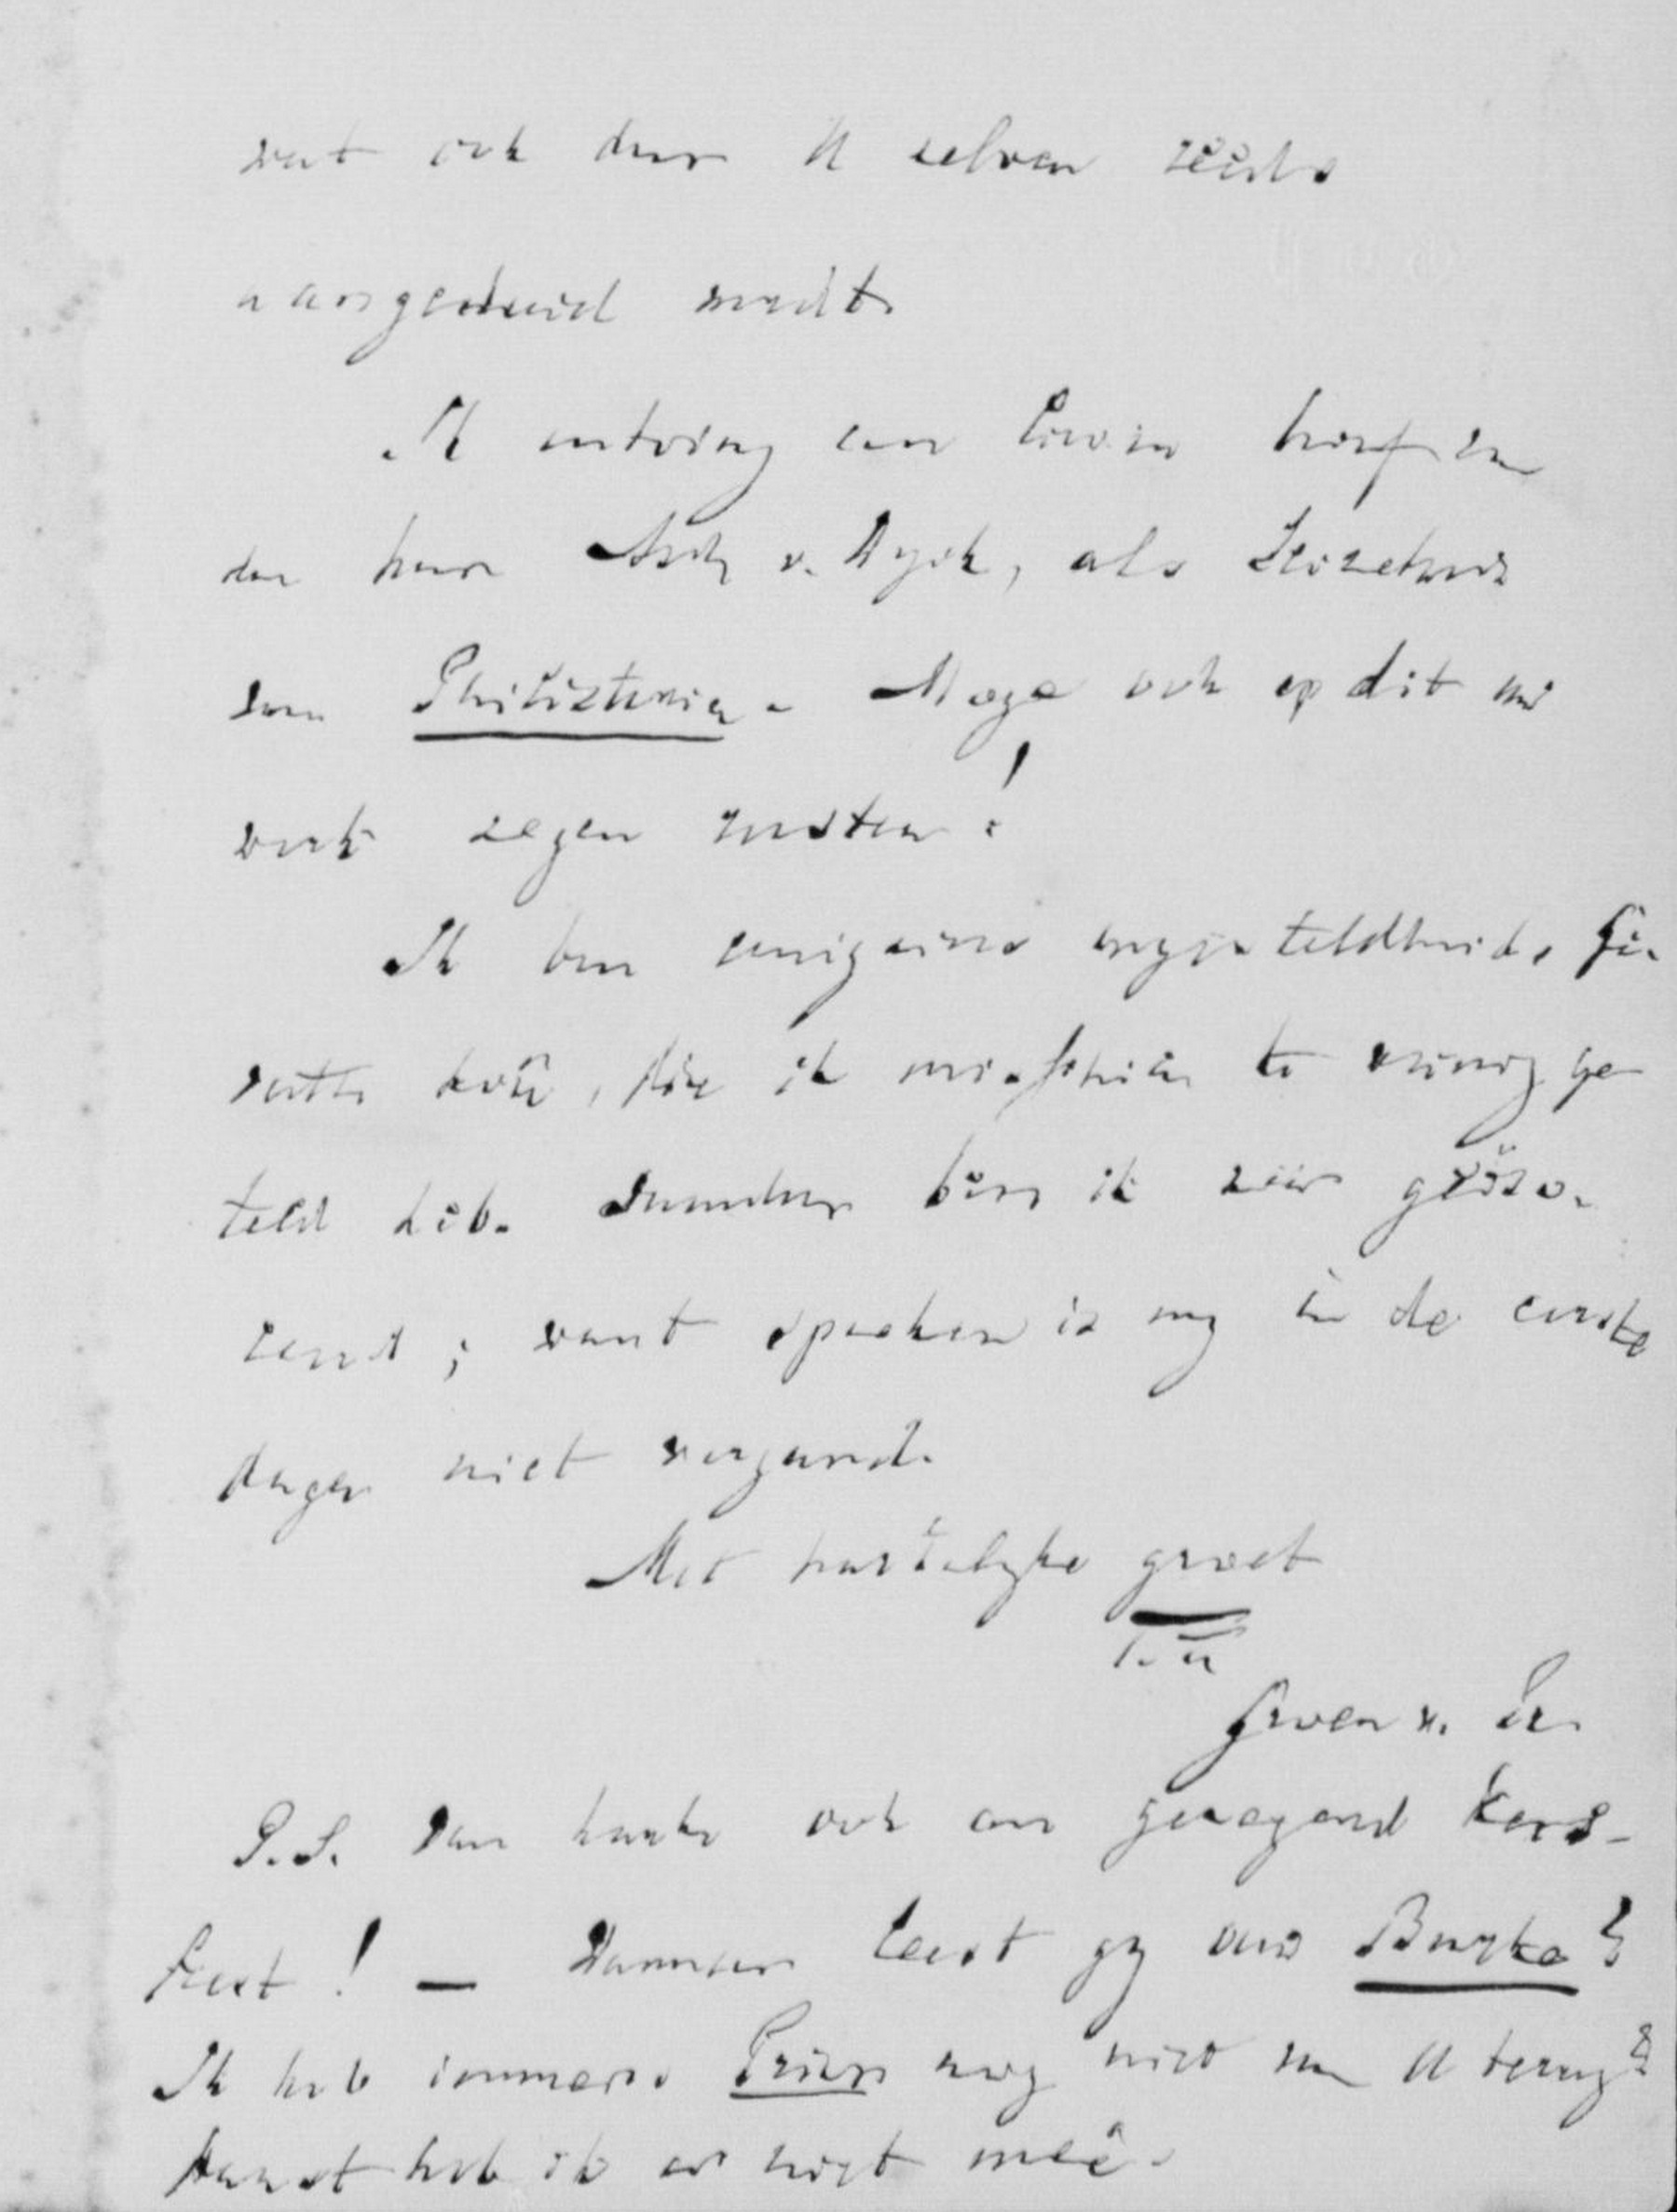 wat ook door U zelven reeds
aangeduid werdt.
Ik ontving een lieven brief van
den heer Asch v. Wyck, als
van Philisteria. Moge ook op dit uw
werk zegen rusten!
Ik ben eenigzins ongesteldheid,
vatte koû, die ik misschien te weinig ge
teld heb. Daardoor ben ik zeer
want spreken is my in de eerste
dagen niet vergund.
Met hartelyke groet
t. a
Groen v. Pr.
P.S. Van harte ook een gezegend Kers-
feest! — Wanneer leest gy ons Burke?
Ik heb immers Prior nog niet van U terug?
Haast heb ik er niet meê.